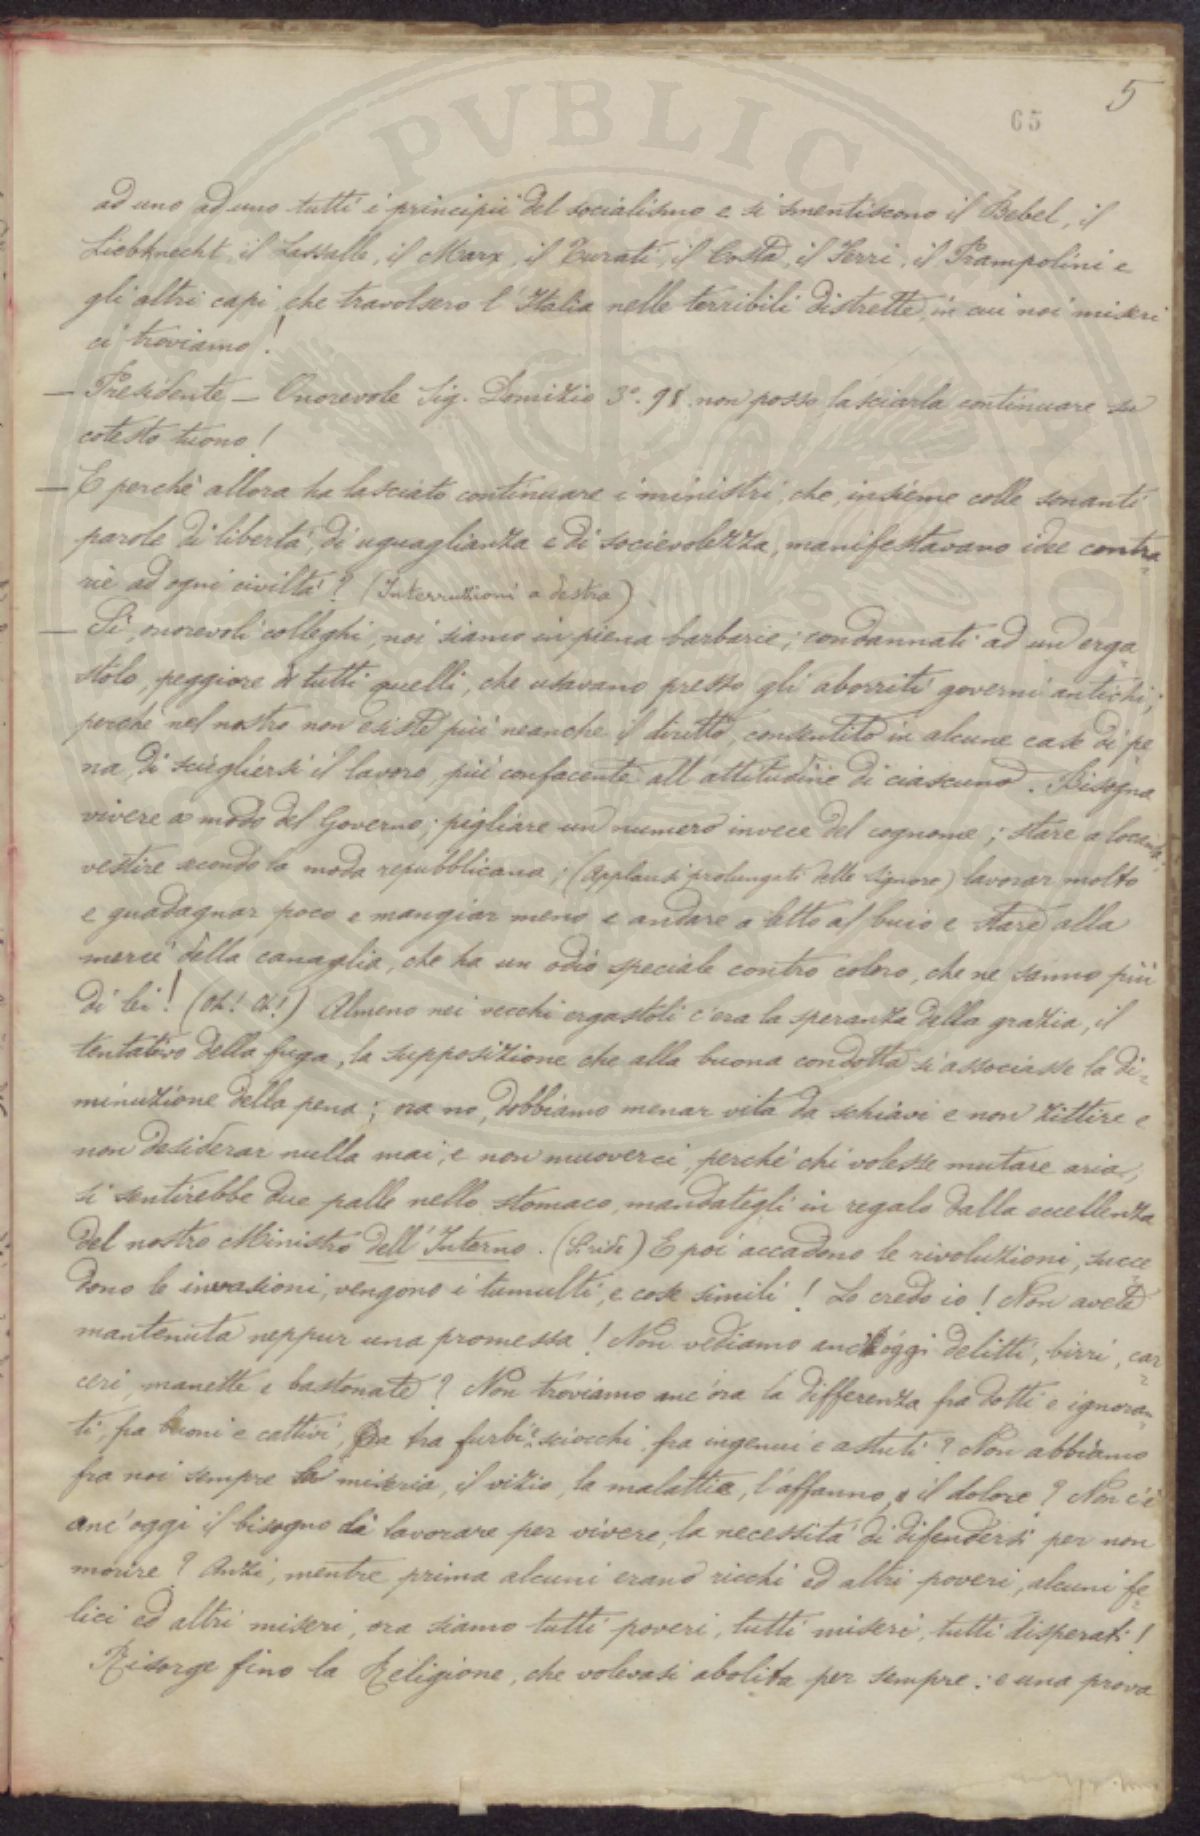 5
65
PVBLICA
ad uno ad uno tutti i principii del socialismo e si smentiscono il Bebel, il
Liebknecht, il Lassalle, il Marx, il Turati, il Costa, il Ferri, il Prampolini e
gli altri capi, che travolsero l'Italia nelle terribili distrette, in cui noi miseri
ci troviamo!
— Presidente — Onorevole Sig. Domizio 3º. 98. non posso lasciarla continuare su
cotesto tuono!
— E perchè allora ha lasciato continuare i ministri, che, insieme colle sonanti
parole di libertà, di uguaglianza e di socievolezza, manifestavano idee contra=
rie ad ogni civiltà? (Interruzioni a destra)
— Sì, onorevoli colleghi, noi siamo in piena barbarie; condannati ad un erga=
stolo, peggiore di tutti quelli, che usavano presso gli aborriti governi antichi;
perchè nel nostro non esiste più neanche il diritto, consentito in alcune case di pe
na, di sciegliersi il lavoro, più confacente all'attitudine di ciascuno. Bisogna
vivere a modo del Governo; pigliare un numero invece del cognome; stare a locanda;
vestire secondo la moda repubblicana; (Applausi prolungati delle Signore) lavorar molto
e guadagnar poco e mangiar meno e andare a letto al buio e stare alla
mercè della canaglia, che ha un odio speciale contro coloro, che ne sanno più
di lei! (Oh! Oh!) Almeno nei vecchi ergastoli c'era la speranza della grazia, il
tentativo della fuga, la supposizione che alla buona condotta si associasse la di=
minuzione della pena; ora no, dobbiamo menar vita da schiavi e non zittire e
non desiderar nulla mai, e non muoverci, perchè chi volesse mutare aria,
si sentirebbe due palle nello stomaco, mandategli in regalo dalla eccellenza
del nostro Ministro dell'Interno. (Si ride) E poi accadono le rivoluzioni, succe=
dono le invasioni, vengono i tumulti, e cose simili! Lo credo io! Non avete
mantenuta neppur una promessa! Non vediamo anch'oggi delitti, birri, car=
ceri, manette e bastonate? Non troviamo anc'ora la differenza fra dotti e ignoran=
ti, fra buoni e cattivi, fra furbi e sciocchi, fra ingenui e astuti? Non abbiamo
fra noi sempre la miseria, il vizio, la malattia, l'affanno, e il dolore? Non c'è
anc'oggi il bisogno di lavorare per vivere, la necessità di difendersi per non
morire? Anzi, mentre prima alcuni erano ricchi ed altri poveri, alcuni fe=
lici ed altri miseri, ora siamo tutti poveri, tutti miseri, tutti disperati!
Risorge fino la Religione, che volevasi abolita per sempre: e una prova